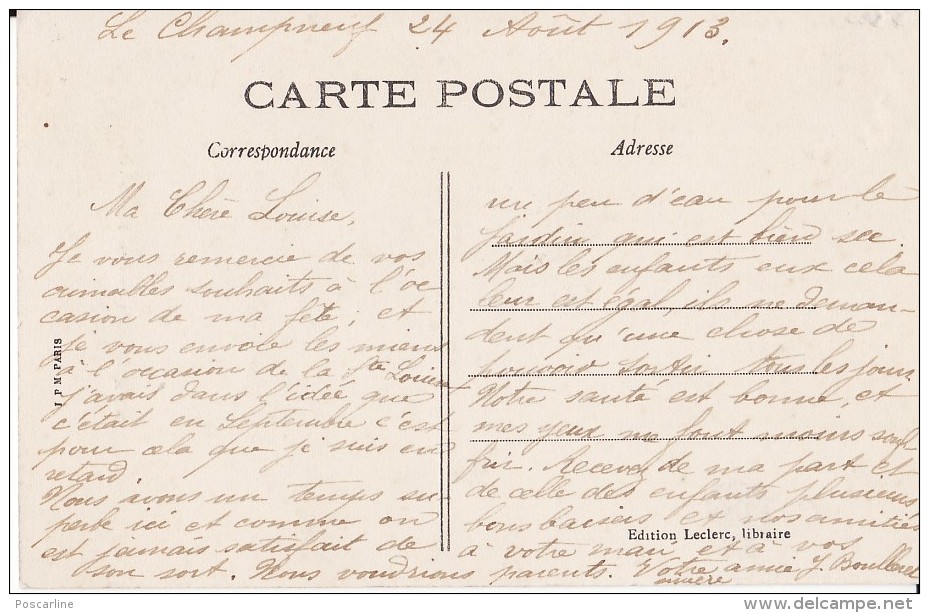 Le Champneuf 24 Août 1913.
CARTE POSTALE
Correspondance
Adresse
Ma Chère Louise,
Je vous remercie de vos
aimables souhaits à l'oc
casion de ma fête, et
je vous envoie les miens
à l'occasion de la Ste Louise
j'avais dans l'idée que
c'était en Septembre c'est
pour cela que je suis en
retard.
Nous avons un temps su-
perbe ici et comme on
est jamais satisfait de
son sort. Nous voudrions
un peu d'eau pour le
jardin qui est bien sec.
Mais les enfants eux cela
leur est égal, ils ne deman-
dent qu'une chose de
pouvoir sortir tous les jours
Notre santé est bonne, et
mes yeux me font moins souf-
frir. Recevez de ma part et
de celle des enfants plusieurs
bons baisers et nos amitiés
à votre mari et à vos
parents. Votre amie J.
J P M PARIS
Edition Leclerc, libraire
Poscarline
delcampe.net